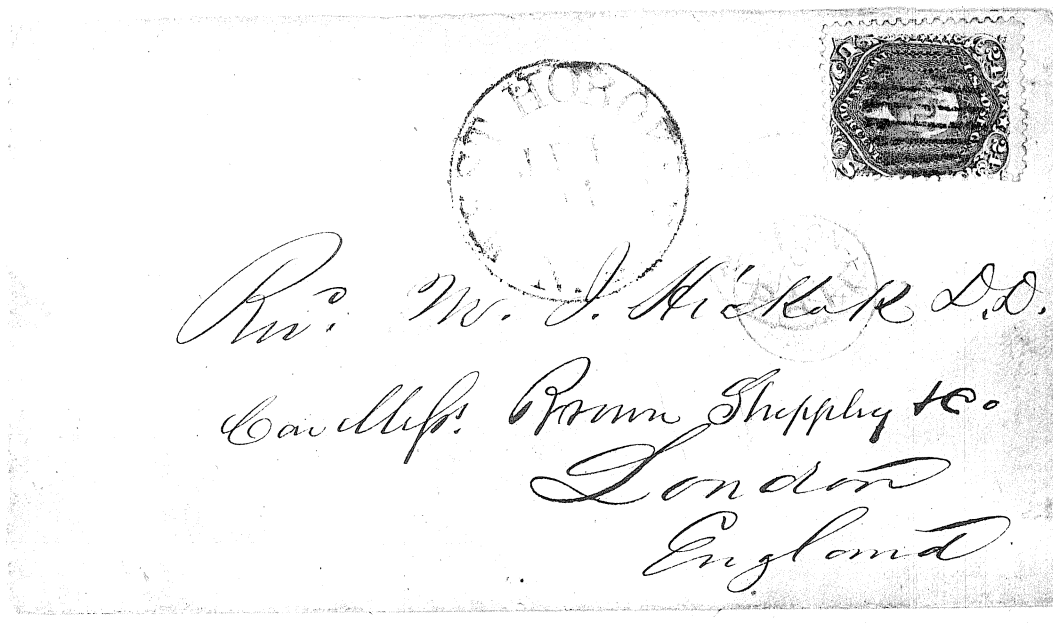 Rev.d M. J. Hickok D.D.
Care Mess. Brown Shippley & Co.
London
England